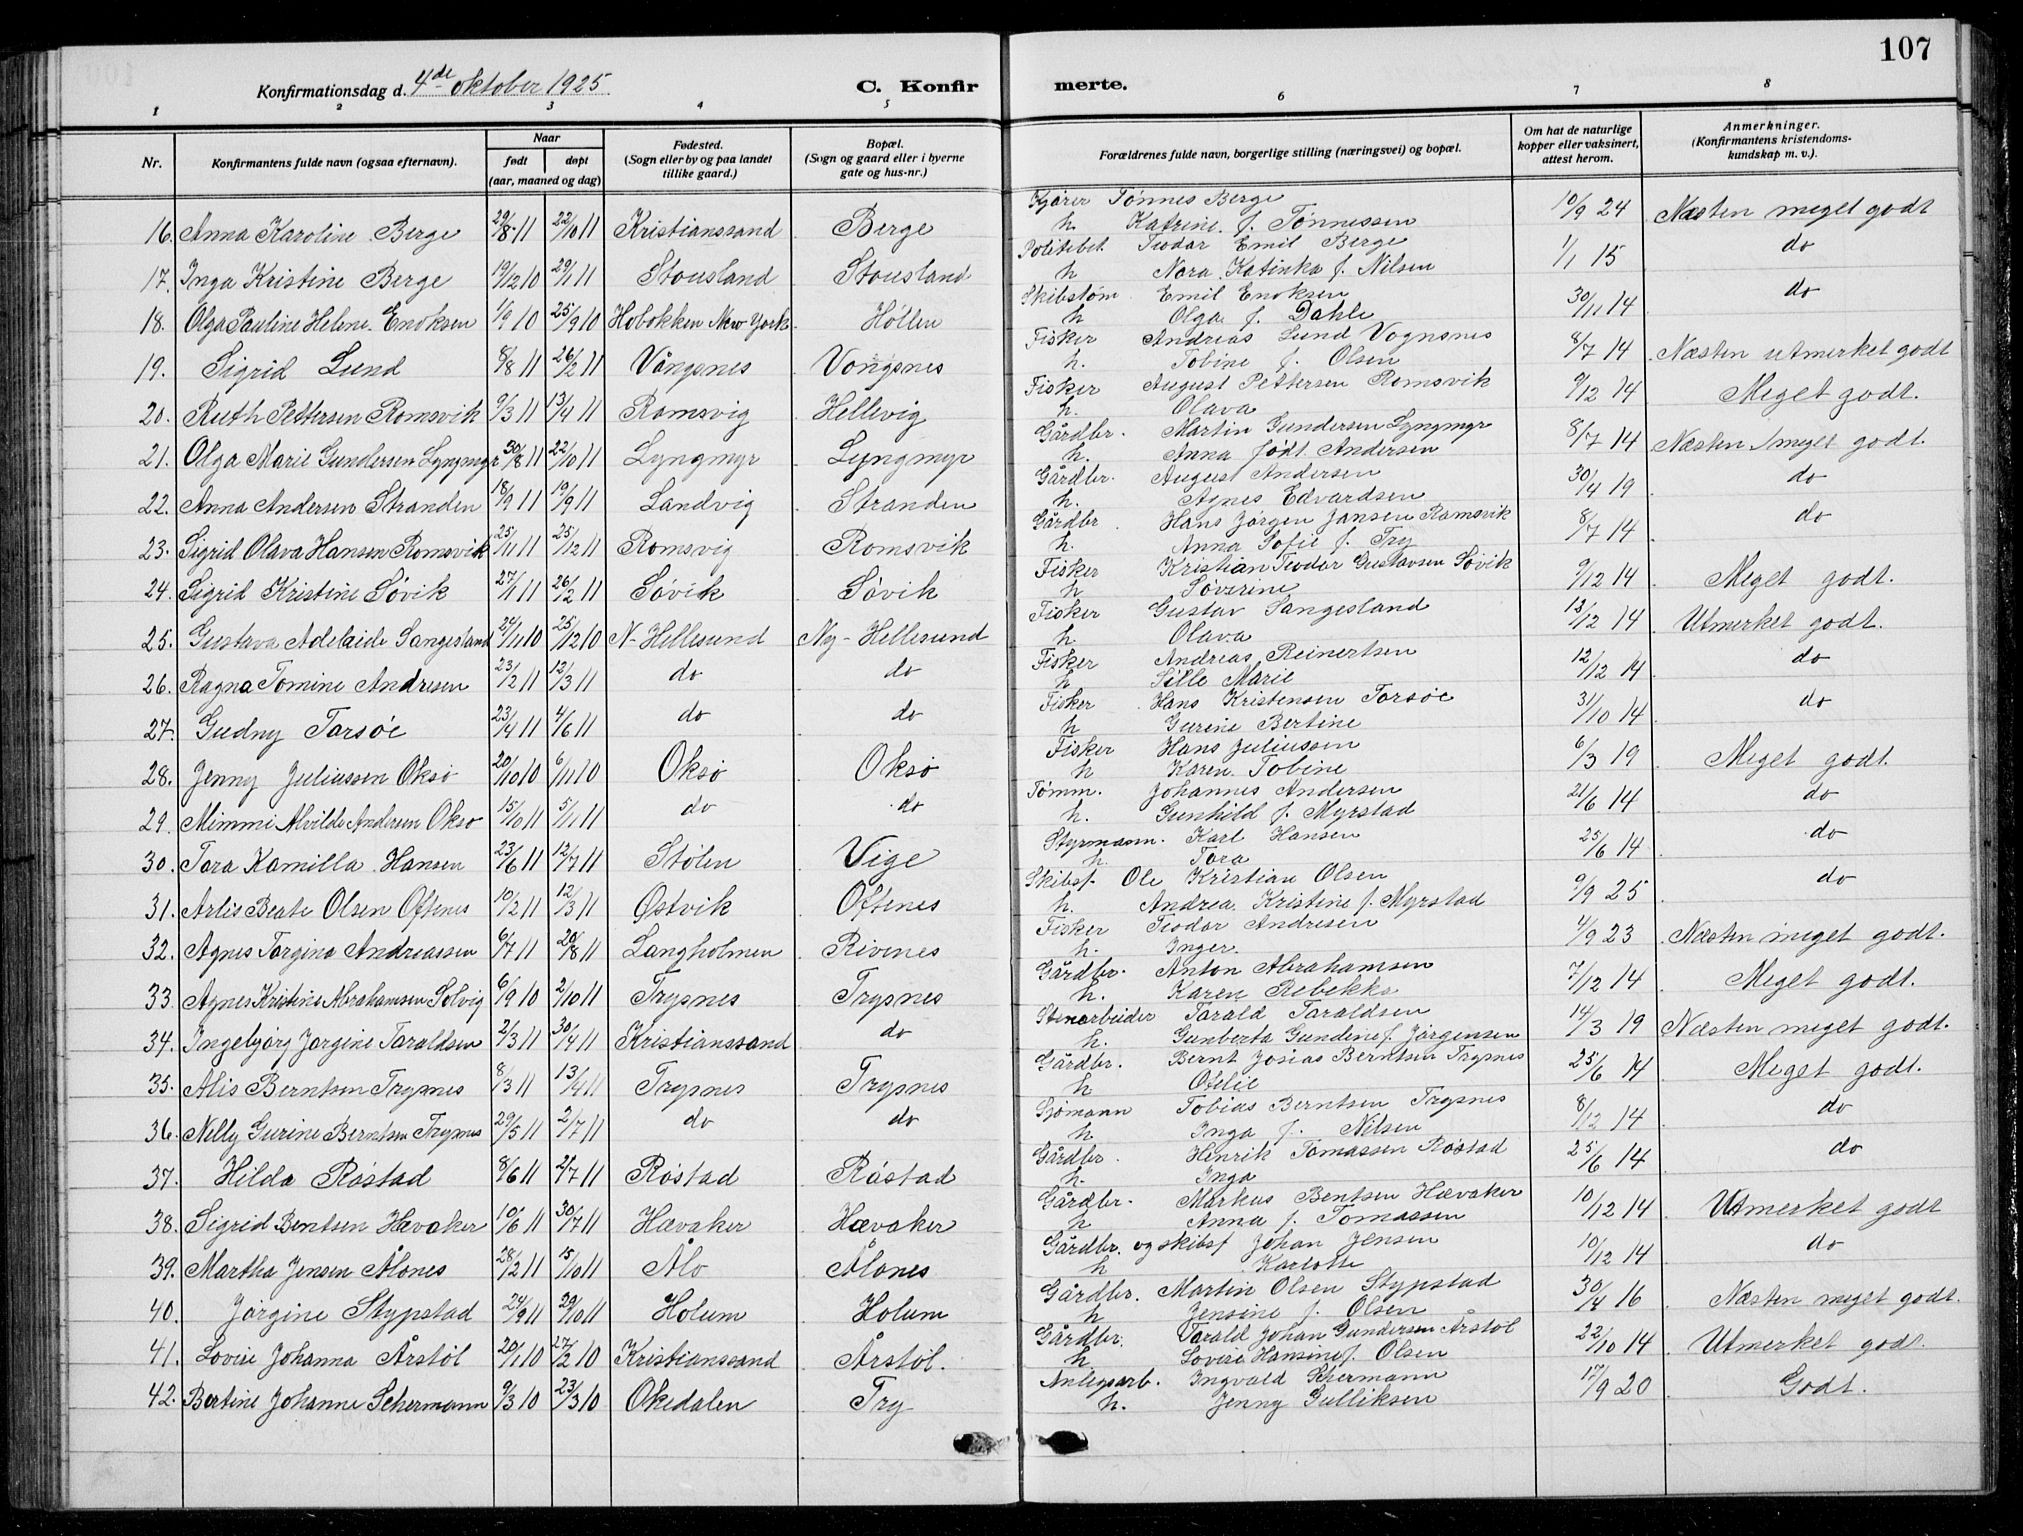 107
Konfirmationsdag d. 4de oktober 1925 C. Konfirmerte.
1 2 3 4 5 6 7 8
Nr. Konfirmantens fulde navn (ogsaa efternavn). Naar født døpt (aar, maaned og dag) Fødested. (Sogn eller by og paa landet tillike gaard.) Bopæl. (Sogn og gaard eller i byerne gate og hus-nr.) Forældrenes fulde navn, borgerlige stilling (næringsvei) og bopæl. Om hat de naturlige kopper eller vaksinert, attest herom. Anmerkninger. (Konfirmantens kristendomskundskap m. v.).
16. Anna Karoline Berge 29/8 11 22/10 11 Kristianssand Berge Kjører Tønnes Berge 10/9 24 Næsten meget godt
h. Katrine f. Tønnessen
17. Inga Kristine Berge 19/12 10 29/1 11 Stousland Stousland Politibet. Teodor Emil Berge 1/1 15 do
h Nora Katinka f. Nilsen
18. Olga Pauline Helene Enoksen 1/9 10 25/9 10 Hobokken New York. Høllen Skibstøm. Emil Enoksen 30/11 14 do
h Olga f. Dahle
19. Sigrid Lund 8/8 11 26/2 11 Vångsnes Vongsnes Fisker Andreas Lund Vognsnes 8/7 14 Næsten utmerket godt
h. Tobine f. Olsen
20. Ruth Pettersen Romsvik 9/3 11 13/4 11 Romsvig Hellevig Fisker August Pettersen Romsvik 9/12 14 Meget godt.
h. Olava
21. Olga Marie Gundersen Lyngmyr 30/8 11 22/10 11 Lyngmyr Lyngmyr Gårdbr. Martin Gundersen Lyngmyr 8/7 14 Næsten meget godt.
h. Anna født Andersen
22. Anna Andersen Stranden 18/9 11 19/9 11 Landvig Stranden Gårdbr. August Andersen 30/4 19 do
h. Agnes Edvardsen
23. Sigrid Olava Hansen Romsvik 25/11 11 25/12 11 Romsvig Romsvik Gårdbr. Hans Jørgen Jansen Romsvik 8/7 14 do
h. Anna Sofie f. Try
24. Sigrid Kristine Søvik 27/1 11 26/2 11 Søvik Søvik Fisker Kristian Teodor Gustavsen Søvik 9/12 14 Meget godt.
h Søverine
25. Gustava Adelaide Sangesland 24/11 10 25/12 10 N-Hellesund Ny-Hellesund Fisker Gustav Sangesland 13/12 14 Utmerket godt.
h. Olava
26. Ragna Tomine Andresen 23/2 11 12/3 11 do do Fisker Andreas Reinertsen 12/12 14 do
h Sille Marie
27. Gudny Torsøe 23/4 11 4/6 11 do do Fisker Hans Kristensen Torsøe 31/10 14 do
h Gurine Bertine
28. Jenny Juliussen Oksø 20/10 10 6/11 10 Oksø Oksø Fisker Hans Juliussen 6/3 19 Meget godt.
h Karen Tobine
29. Mimmi Alvilde Andersen Oksø 15/10 11 5/11 11 do do Tømm. Johannes Andersen 21/6 14 do
h. Gunhild f. Myrstad
30. Tora Kamilla Hansen 23/6 11 12/7 11 Stølen Vige Styrmann. Karl Hansen 25/6 14 do
h. Tora
31. Arlis Beate Olsen Oftenes 10/2 11 12/3 11 Østvik Oftenes Skibsf. Ole Kristian Olsen 9/9 25 do
h. Andrea Kristine f. Myrstad
32. Agnes Torgine Andreassen 6/7 11 20/8 11 Langholmen Rivenes Fisker Teodor Andresen 4/9 23 Næsten meget godt.
h. Inger.
33. Agnes Kristine Abrahamsen Solvig 6/9 10 2/10 11 Trysnes Trysnes Gårdbr. Anton Abrahamsen 7/12 14 Meget godt.
h. Karen Rebekka
34. Ingebjørg Jorgine Taraldsen 2/3 11 30/4 11 Kristianssand do Stenarbeider Tarald Taraldsen 14/3 19 Næsten meget godt.
h. Gunberta Gundine f. Jørgensen
35. Alis Berntsen Trysnes 8/3 11 13/4 11 Trysnes Trysnes Gårdbr. Bernt Josias Berntsen Trysnes 25/6 14 Meget godt.
h Ofelie
36. Nelly Gurine Berntsen Trysnes 29/5 11 2/7 11 do do Sjømann Tobias Berntsen Trysnes 8/12 14 do
h Inga f. Nilsen
37. Hilda Røstad 8/6 11 2/7 11 Røstad Røstad Gårdbr. Henrik Tomassen Røstad 25/6 14 do
h. Inga
38. Sigrid Bentsen Hævaker 10/6 11 30/7 11 Hævaker Hævaker Gårdbr. Markus Bentsen Hævaker 10/12 14 Utmerket godt
h Anna f. Tomassen
39. Martha Jensen Ålones 28/2 11 15/10 11 Ålo Ålones Gårdbr. og skibsf Johan Jensen 10/12 14 do
h Karlotte
40. Jørgine Stypstad 24/9 11 29/10 11 Holum Holum Gårdbr. Martin Olsen Stypstad 30/4 16 Næsten meget godt.
h Jensine f. Olsen
41. Lovise Johanna Årstøl 20/1 10 27/2 10 Kristianssand Årstøl. Gårdbr. Tarald Johan Gundersen Årstøl 22/10 14 Utmerket godt.
h Lovise Hansine f. Olsen
42. Bertine Johanne Schermann 9/3 10 23/3 10 Okedalen Try Anlegsarb. Ingvald Schermann 17/9 20 Godt.
h. Jenny Gulliksen